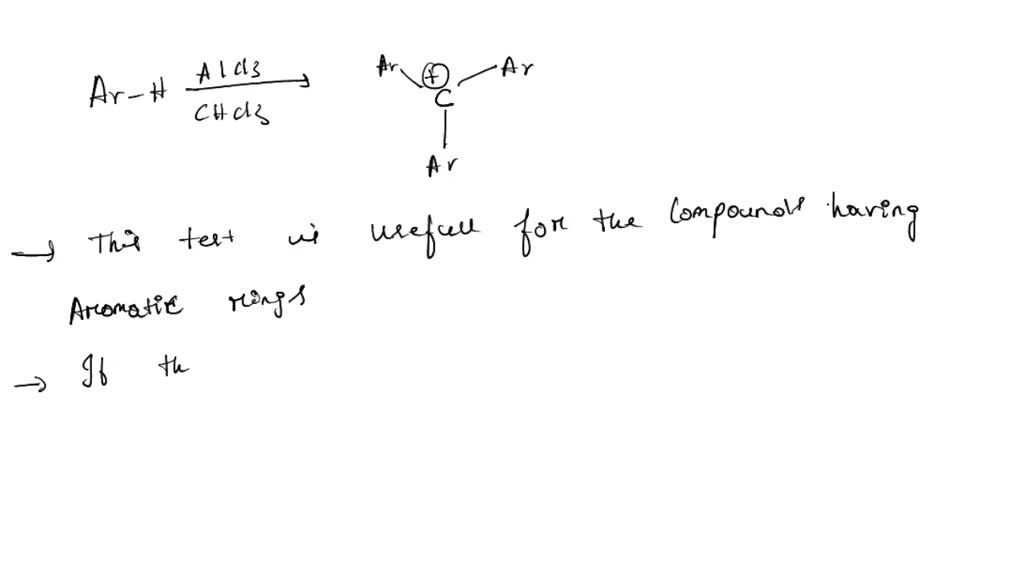 Ar-H AlCl3 Ar ⊕ Ar
CHCl3 C
Ar
→ This test is usefull for the Compounds having
Aromatic rings
→ If th